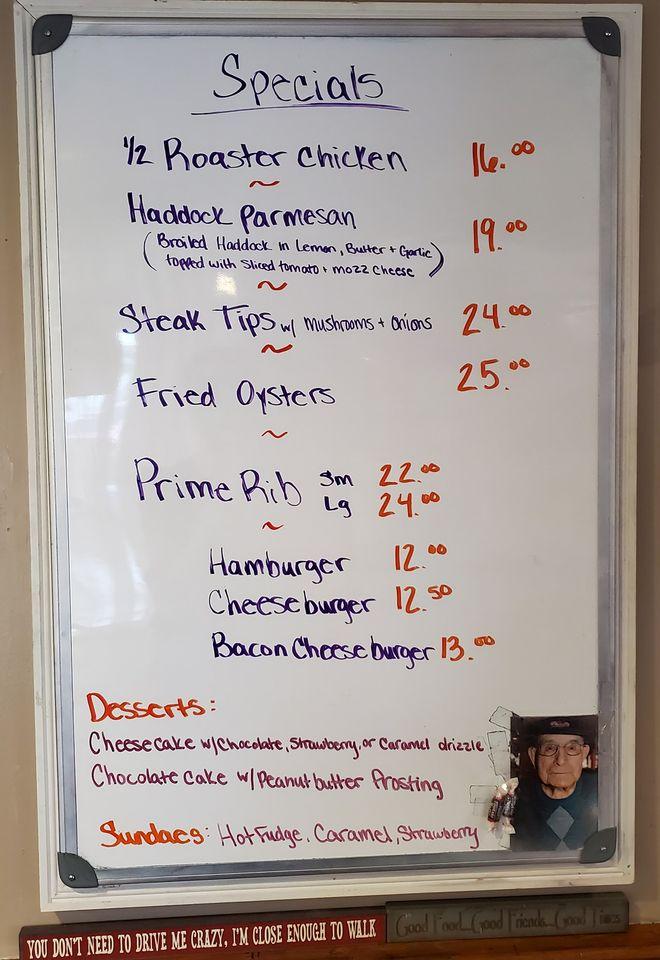 Specials
1/2 Roaster Chicken 16.00
~
Haddock Parmesan 19.00
(Broiled Haddock in Lemon, Butter + Garlic
topped with Sliced tomato + mozz cheese)
~
Steak Tips w/ mushrooms + onions 24.00
~
Fried Oysters 25.00
~
Prime Rib Sm 22.00
Lg 24.00
~
Hamburger 12.00
Cheeseburger 12.50
Bacon Cheeseburger 13.00
Desserts:
Cheesecake w/Chocolate, Strawberry, or Caramel drizzle
Chocolate cake w/Peanutbutter frosting
Sundaes: Hot Fudge, Caramel, Strawberry
YOU DON'T NEED TO DRIVE ME CRAZY, I'M CLOSE ENOUGH TO WALK
Good Food...Good Friends...Good Times